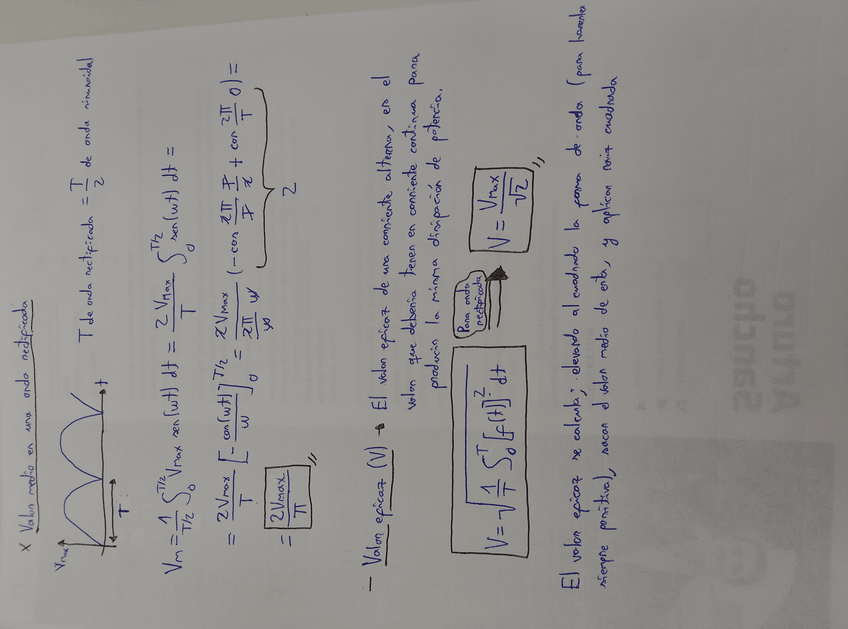 x Valor medio en una onda rectificada
Vmax
t
T
T de onda rectificada = T/2 de onda sinusoidal
Vm = 1/(T/2) ∫₀^(T/2) Vmax sen(wt) dt = 2Vmax/T ∫₀^(T/2) sen(wt) dt =
= 2Vmax/T [-cos(wt)/w]₀^(T/2) = 2Vmax/(2π/T · T) (-cos 2π/T · T/2 + cos 2π/T 0) =
2
= 2Vmax/π
- Valor eficaz (V) → El valor eficaz de una corriente alterna, es el
valor que debería tener en corriente continua para
producir la misma disipación de potencia.
V = √(1/T ∫₀^T [f(t)]² · dt)
Para onda
rectificada
V = Vmax/√2
El valor eficaz se calcula; elevando al cuadrado la forma de onda (para hacerla
siempre positiva), sacar el valor medio de esta, y aplicar raiz cuadrada
Arturo
Sancho